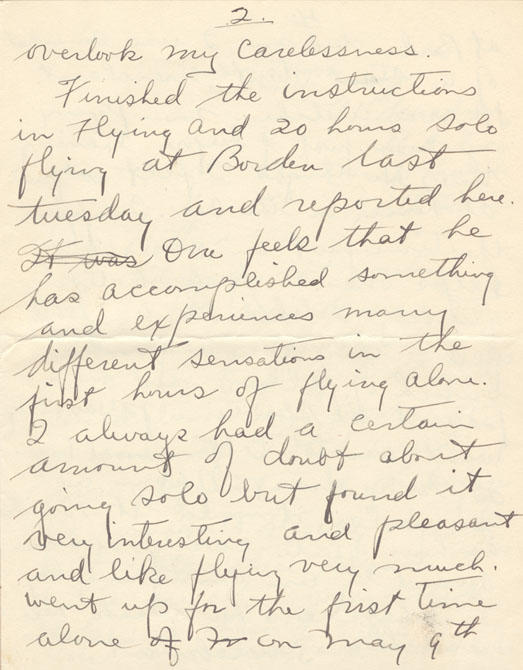 2.
overlook my carelessness.
Finished the instructions
in Flying and 20 hours solo
flying at Borden last
tuesday and reported here.
It was One feels that he
has accomplished something
and experiences many
different sensations in the
first hours of flying alone.
I always had a certain
amount of doubt about
going solo but found it
very interesting and pleasant
and like flying very much.
went up for the first time
alone of on May 9th